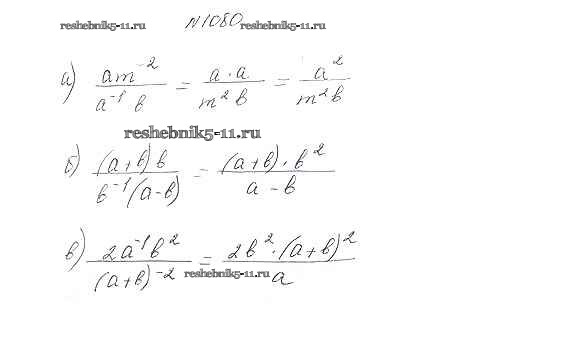 reshebnik5-11.ru №1080 reshebnik5-11.ru
а) am⁻² / a⁻¹b = a·a / m²b = a² / m²b
reshebnik5-11.ru
б) (a+b)b / b⁻¹(a-b) = (a+b)·b² / a-b
в) 2a⁻¹b² / (a+b)⁻² = 2b²·(a+b)² / a
reshebnik5-11.ru